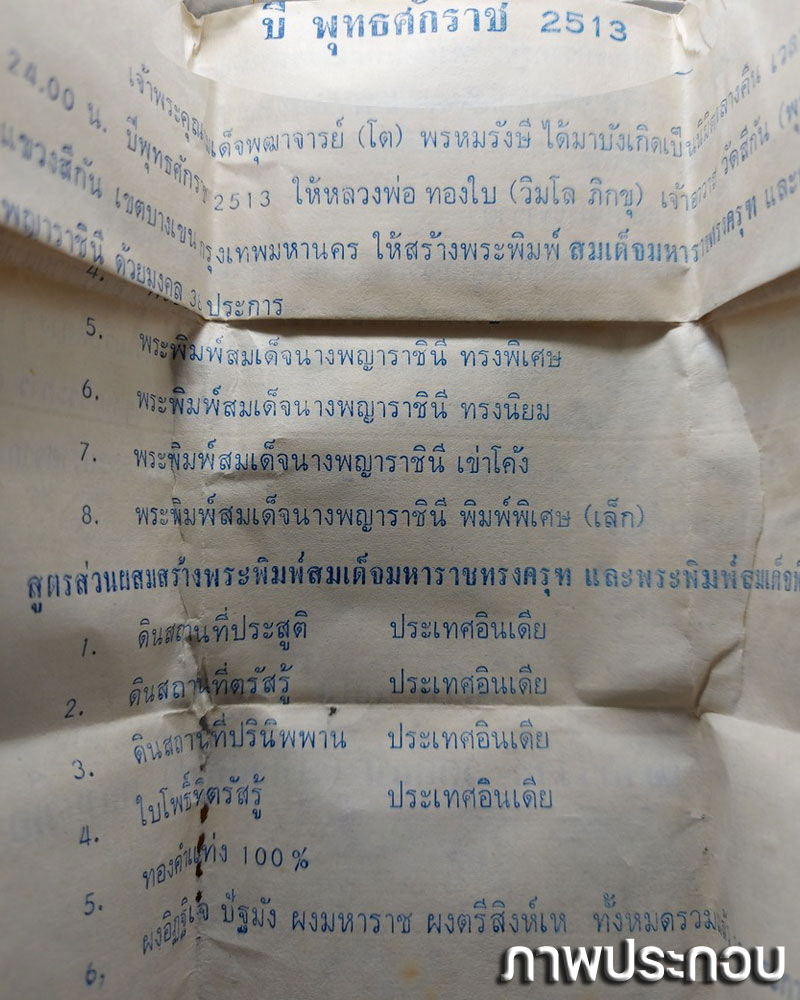 ปี พุทธศักราช 2513
เจ้าพระคุณสมเด็จพุฒาจารย์ (โต) พรหมรังษี ได้มาบังเกิดเป็นนิมิตกลางคืน เวลา
24.00 น. ปีพุทธศักราช 2513 ให้หลวงพ่อ ทองใบ (วิมโล ภิกขุ) เจ้าอาวาส วัดสีกัน
แขวงสีกัน เขตบางเขน กรุงเทพมหานคร ให้สร้างพระพิมพ์ สมเด็จมหาราชทรงครุฑ และ
พญาราชินี ด้วยมงคล 38 ประการ
4.
5. พระพิมพ์สมเด็จนางพญาราชินี ทรงพิเศษ
6. พระพิมพ์สมเด็จนางพญาราชินี ทรงนิยม
7. พระพิมพ์สมเด็จนางพญาราชินี เข่าโค้ง
8. พระพิมพ์สมเด็จนางพญาราชินี พิมพ์พิเศษ (เล็ก)
สูตรส่วนผสมสร้างพระพิมพ์สมเด็จมหาราชทรงครุฑ และพระพิมพ์สมเด็จ
1. ดินสถานที่ประสูติ ประเทศอินเดีย
2. ดินสถานที่ตรัสรู้ ประเทศอินเดีย
3. ดินสถานที่ปรินิพพาน ประเทศอินเดีย
4. ใบโพธิ์ที่ตรัสรู้ ประเทศอินเดีย
5. ทองคำแท่ง 100%
6. ผงอิฏฐิเจ ปัฐมัง ผงมหาราช ผงตรีสิงห์เห ทั้งหมดรวม
ภาพประกอบ